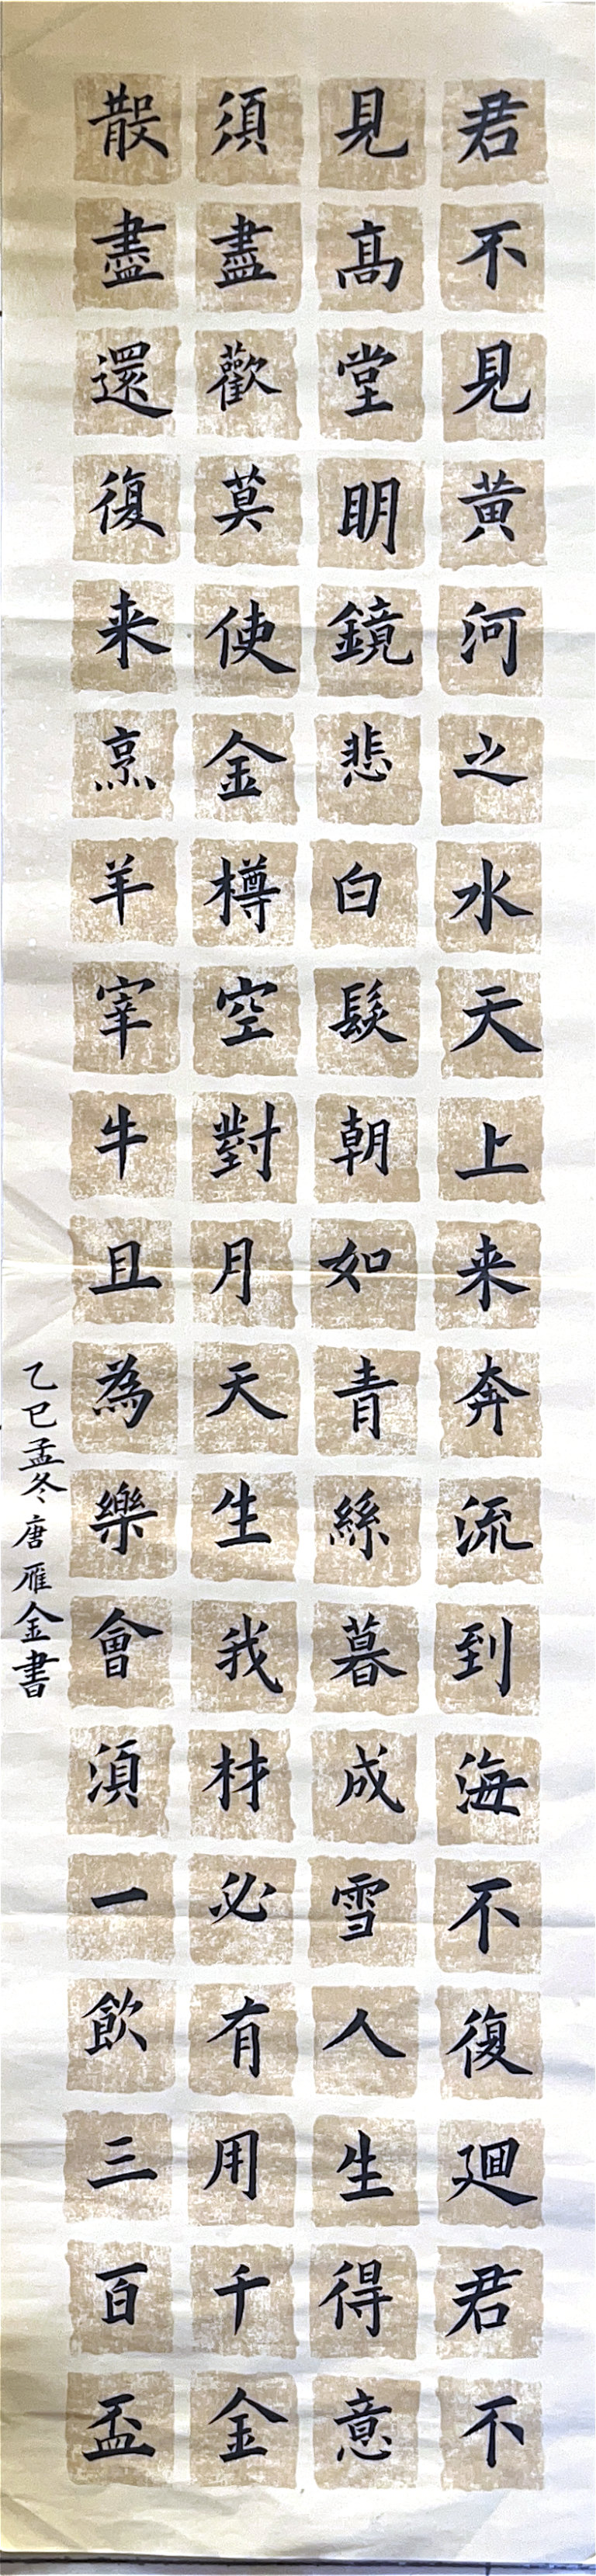 君不見黄河之水天上来奔流到海不復迴君不
見髙堂明鏡悲白髮朝如青絲暮成雪人生得意
須盡歡莫使金樽空對月天生我材必有用千金
散盡還復来烹羊宰牛且為樂會須一飲三百盃
乙巳孟冬唐雁金書